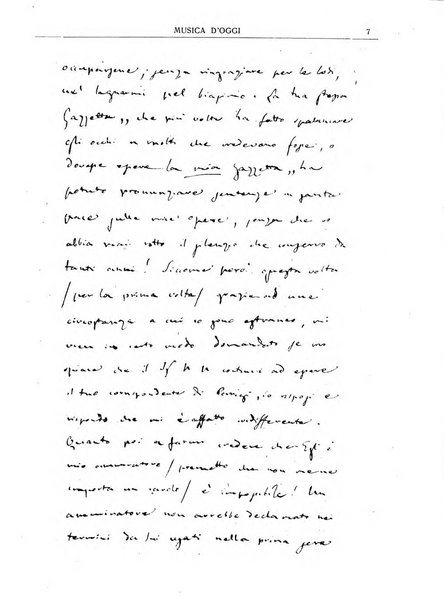 MUSICA D'OGGI 7
occuparmene; senza ringraziare per le lodi,
nè lagnarmi pel biasimo. La tua stessa
Gazzetta,, che più volte ha fatto spalancare
gli occhi a molti che credevano fosse, o
dovesse essere la mia Gazzetta,, ha
potuto pronunziare sentenze in santa
pace sulle mie opere, senza che io
abbia mai rotto il silenzio che conservo da
tanti anni! Siccome però questa volta
/per la prima volta/ grazie ad una
circostanza a cui io sono estraneo, mi
vien in certo modo domandato se mi
piace che il Sig N N continui ad essere
il tuo corrispondente di Parigi, io risposi e
rispondo che mi è affatto indifferente.
Quanto poi a farmi credere che Egli è
mio ammiratore /premetto che non me ne
importa un cavolo/ è impossibile! Un
ammiratore non avrebbe declamato nei
termini da lui usati nella prima sera